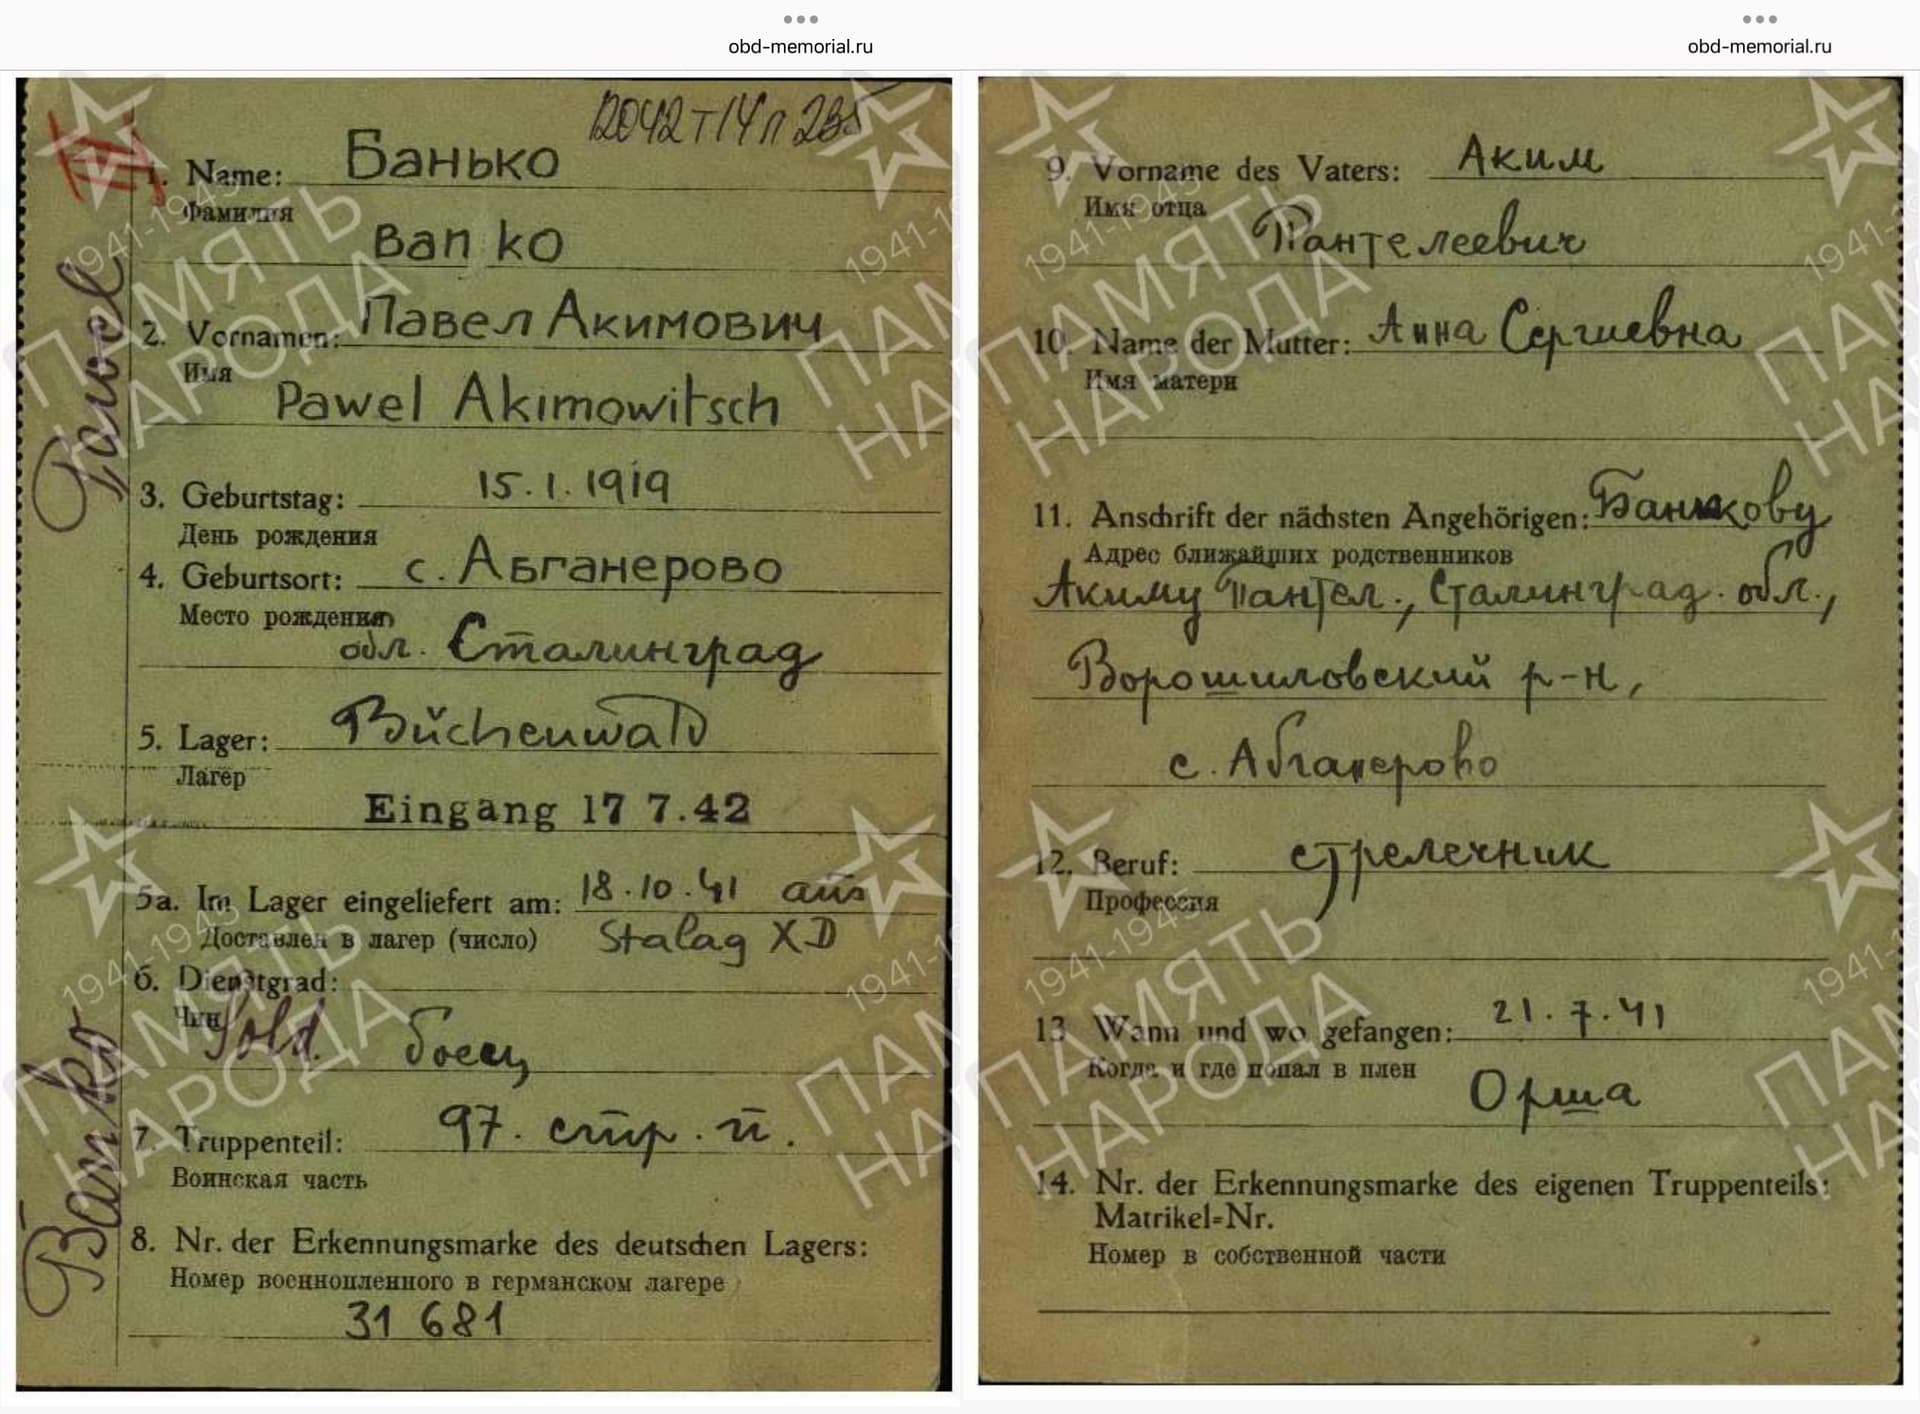 obd-memorial.ru
12042 т 14 п 235
III
1. Name: Банько
Фамилия
Banko
2. Vornamen: Павел Акимович
Имя
Pawel Akimowitsch
3. Geburtstag: 15.1.1919
День рождения
4. Geburtsort: с. Абганерово
Место рождения
обл. Сталинград
5. Lager: Büchenwald
Лагер
Eingang 17 7.42
5a. Im Lager eingeliefert am: 18.10.41 aus
Доставлен в лагер (число) Stalag XD
6. Dienstgrad:
Чин Sold. боец
7. Truppenteil: 97. стр. п.
Воинская часть
8. Nr. der Erkennungsmarke des deutschen Lagers:
Номер военнопленного в германском лагере
31 681
Banko Pawel
obd-memorial.ru
9. Vorname des Vaters: Аким
Имя отца
Пантелеевич
10. Name der Mutter: Анна Сергиевна
Имя матери
11. Anschrift der nächsten Angehörigen: Банькову
Адрес ближайших родственников
Акиму Пантел., Сталинград. обл.,
Ворошиловский р-н,
с. Абганерово
12. Beruf: стрелечник
Профессия
13. Wann und wo gefangen: 21.7.41
Когда и где попал в плен
Орша
14. Nr. der Erkennungsmarke des eigenen Truppenteils:
Matrikel=Nr.
Номер в собственной части
1941-1945
ПАМЯТЬ
НАРОДА